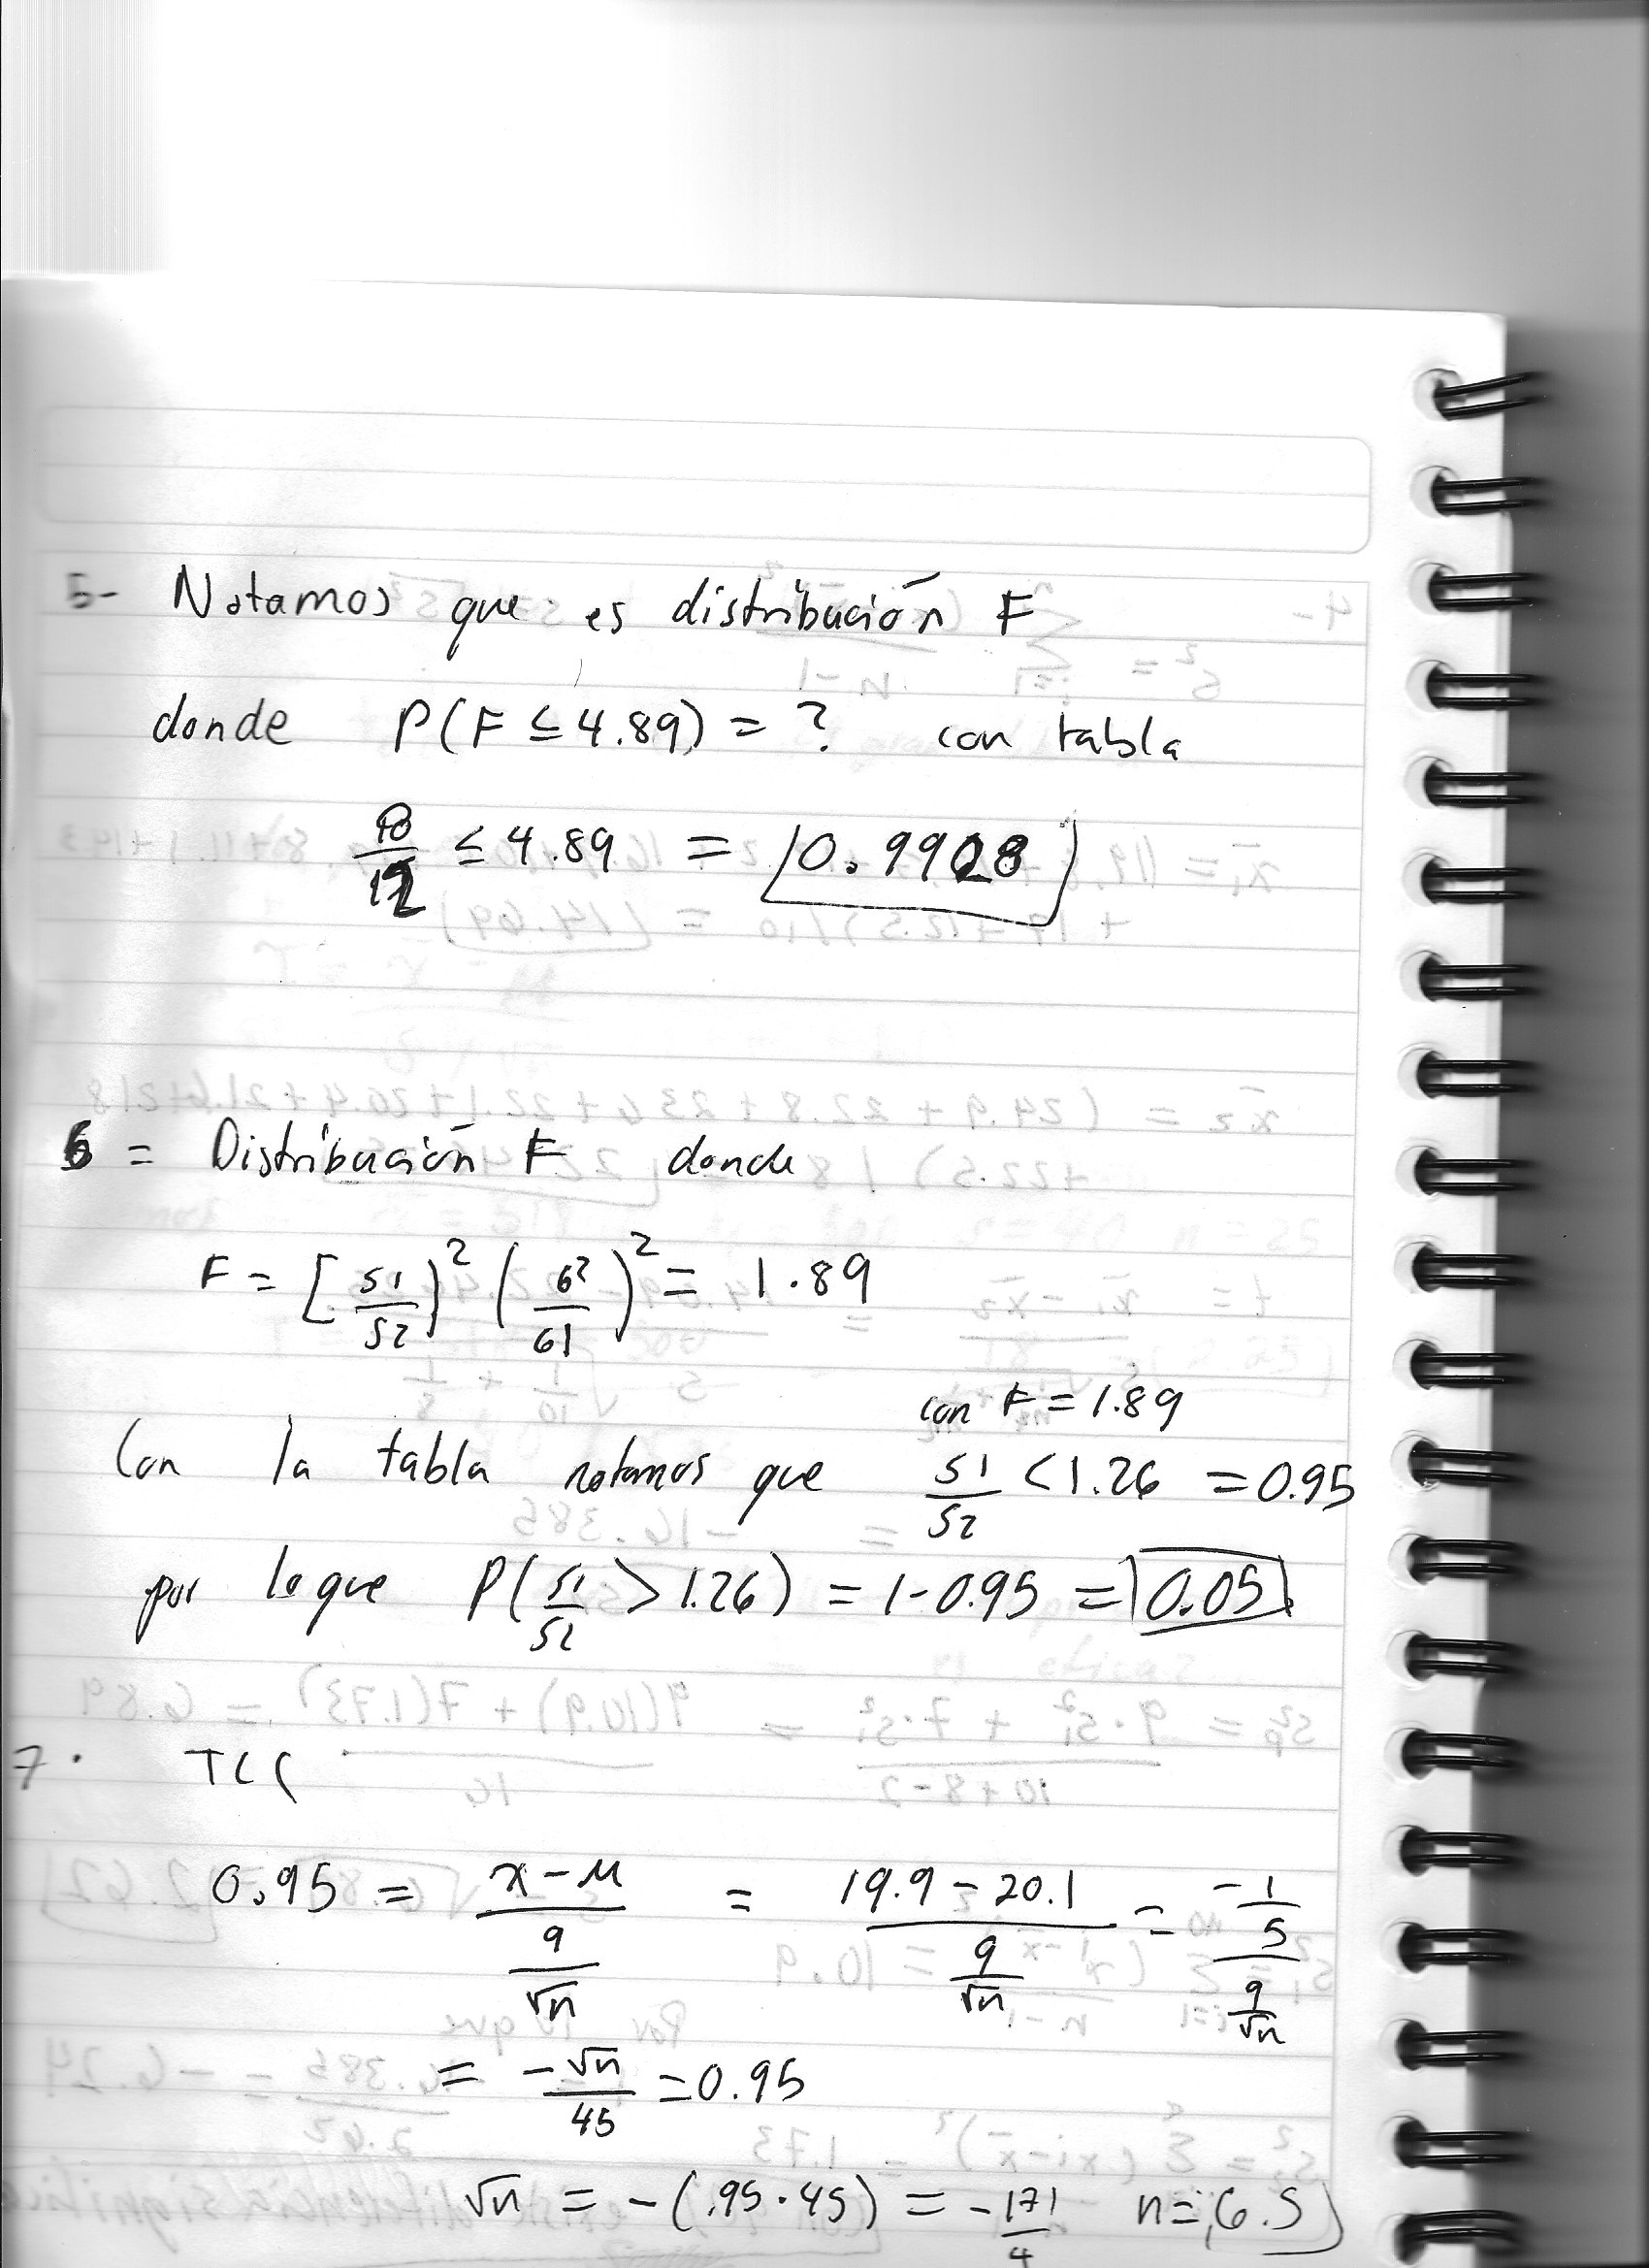 5- Notamos que es distribución F
donde P(F ≤ 4.89) = ? con tabla
10/12 ≤ 4.89 = 0.9928
6 = Distribución F donde
F = [s1/s2)² (62/61)² = 1.89
con F = 1.89
Con la tabla notamos que s1/s2 < 1.26 = 0.95
por lo que P(s1/s2 > 1.26) = 1-0.95 = 0.05
7. TCC
0.95 = x-μ / 9/√n = 19.9 - 20.1 / 9/√n = -1/5 / 9/√n
= -√n/45 = 0.95
√n = -(.95·45) = -171/4 n = 6.5